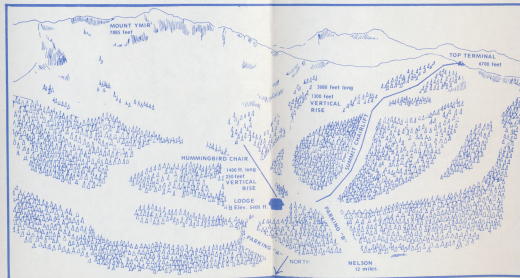 MOUNT YMIR
7885 feet
TOP TERMINAL
6700 feet
5000 feet long
1300 feet
VERTICAL
RISE
SUMMIT CHAIRLIFT
HUMMINGBIRD CHAIR
1400 ft. long
250 feet
VERTICAL
RISE
LODGE
Elev. 5400 ft.
PARKING "B"
PARKING "A"
NORTH
NELSON
12 miles